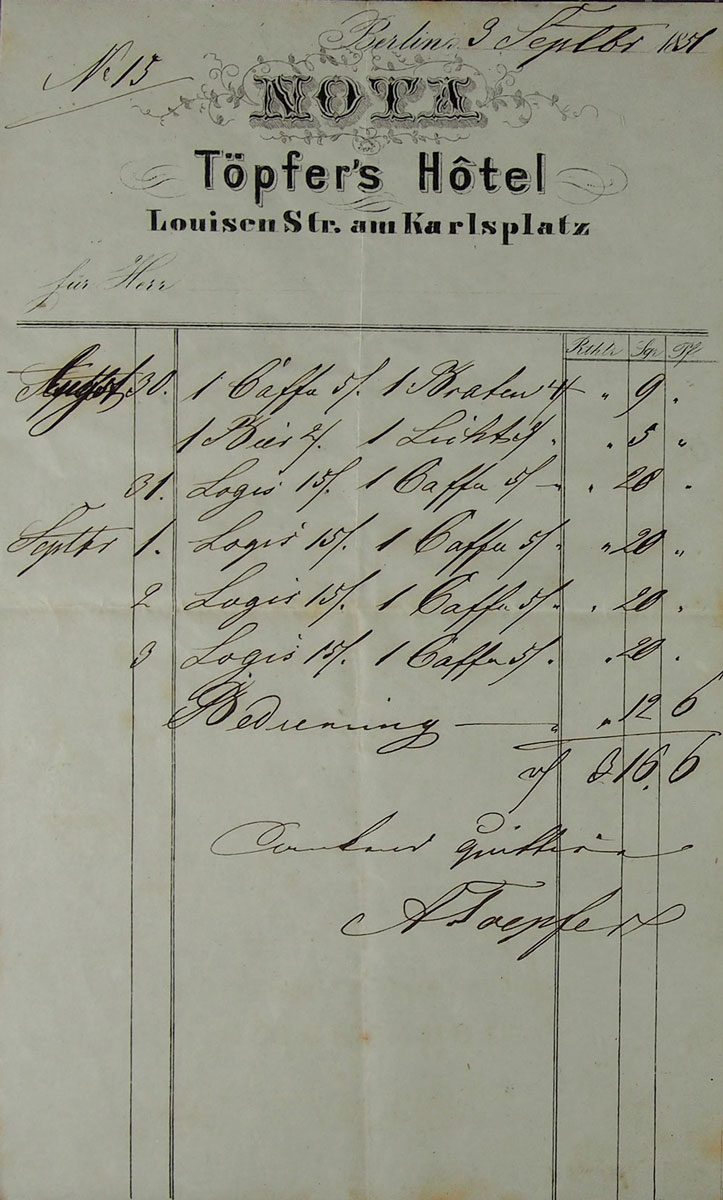 Berlin, 3 Septbr 1851
No 15
NOTA
Töpfer's Hôtel
Louisen Str. am Karlsplatz
für Herr
Rthlr Sgr Pf
August 30. 1 Caffee 5/. 1 Braten 4 " 9 "
1 Bier 2/. 1 Licht 3/ " 5 "
31. Logis 15/. 1 Caffee 5/ — " 20 "
Septbr 1. Logis 15/. 1 Caffee 5/ " 20 "
2 Logis 15/. 1 Caffee 5/ " 20 "
3 Logis 15/. 1 Caffee 5/. " 20 "
Bedienung — " 12 6
3. 16. 6
dankend quittire
A Toepfer